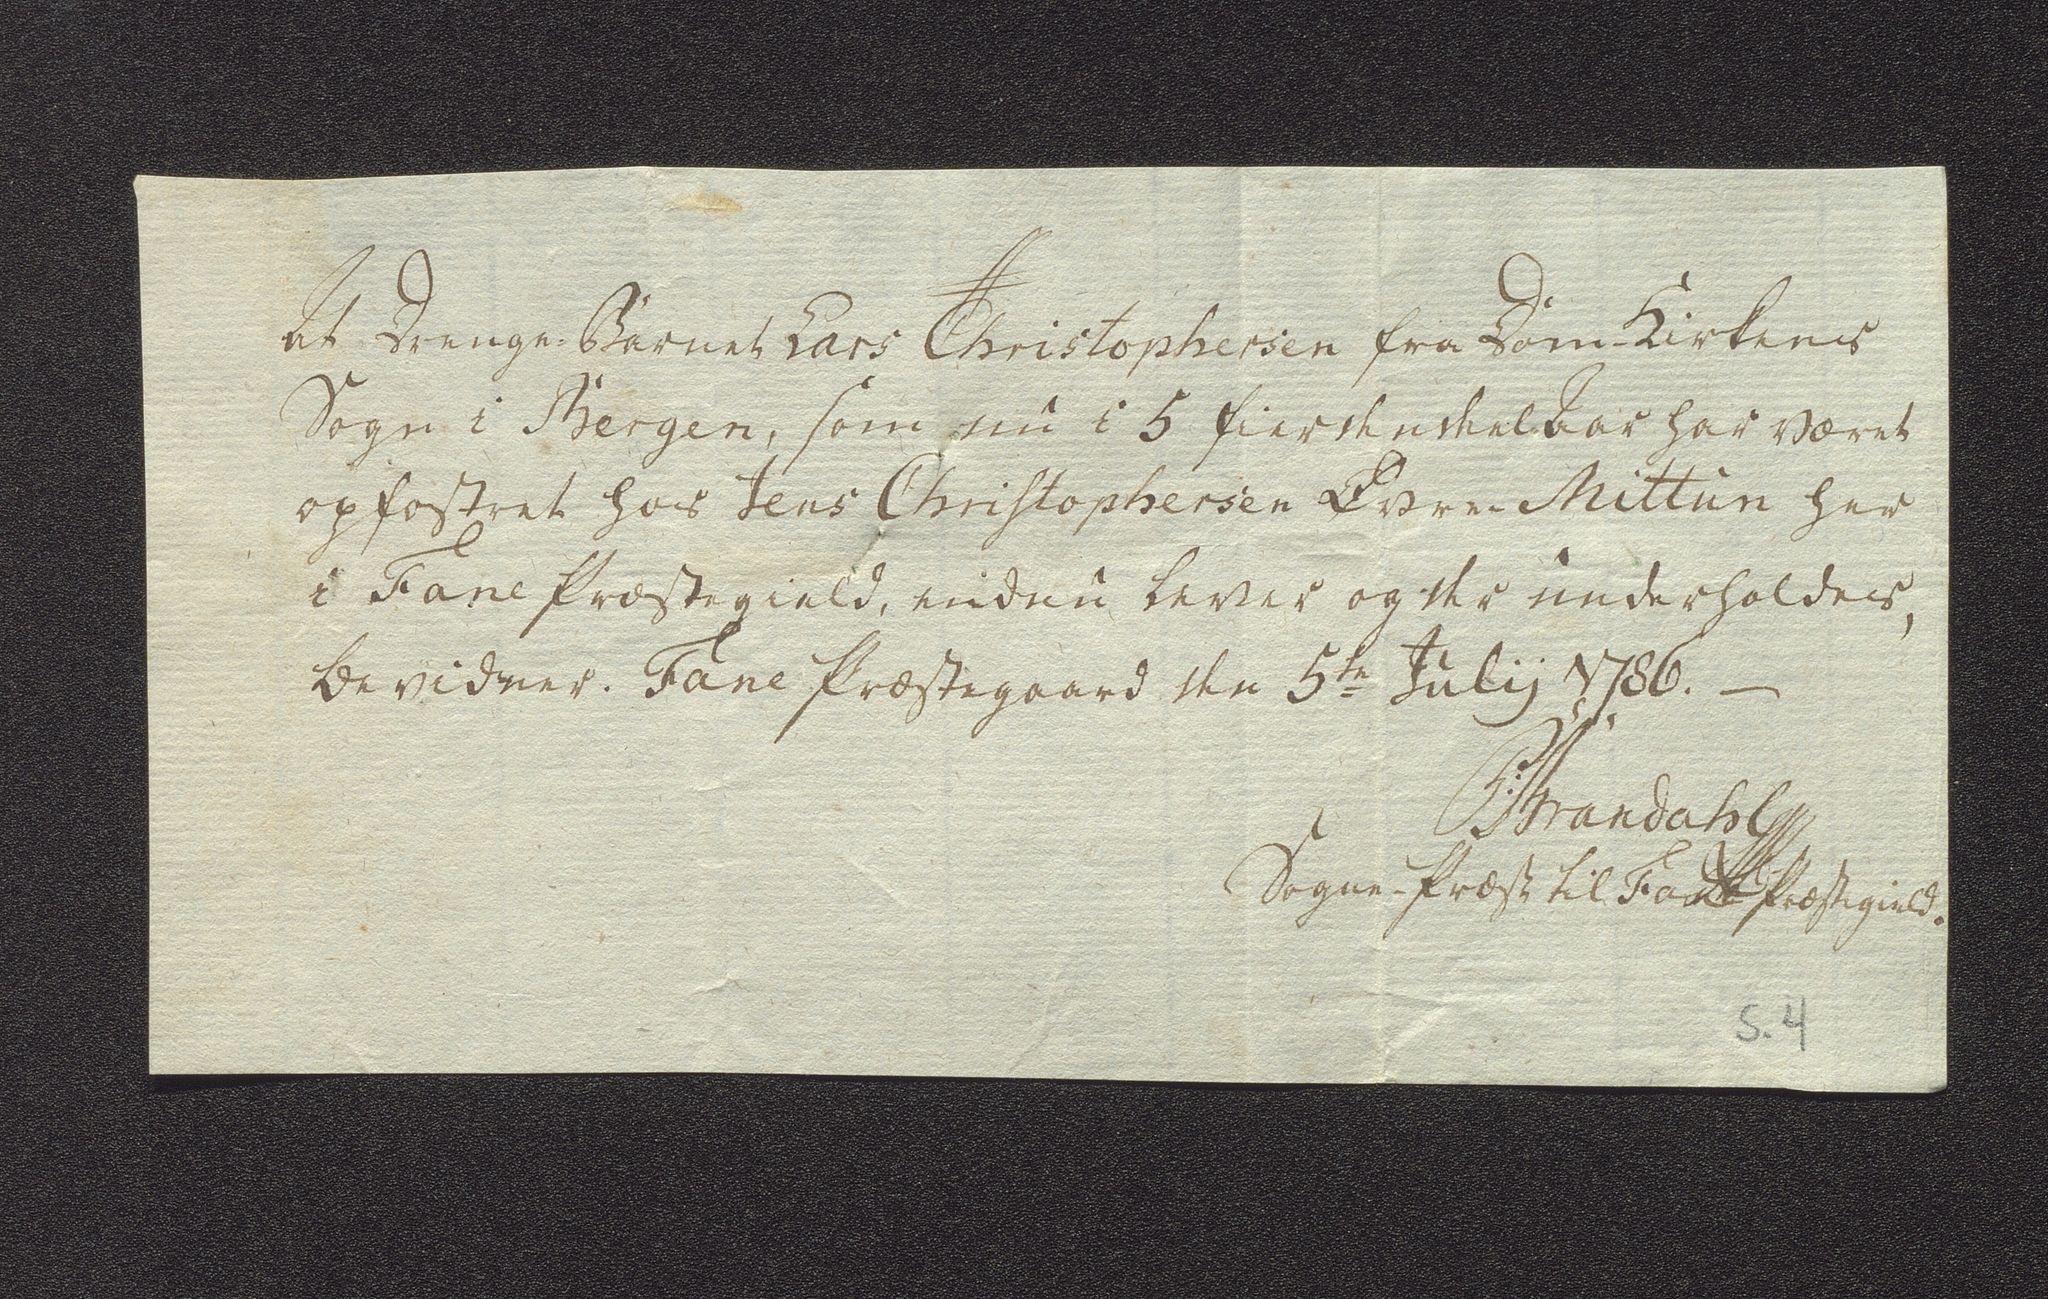 At Drenge-Barnet Lars Christophersen fra Dom-Kirkens
Sogn i Bergen, som nu i 5 fierdendeel Aar har været
opfostret hos Jens Christophersen Øvre Mittun her
i Fane Præstegield, endnu lever og der underholdes,
bevidner. Fane Præstegaard den 5te Julij 1786. —
Brandahl
Sogne-Præst til Fane Præstegield.
S. 4